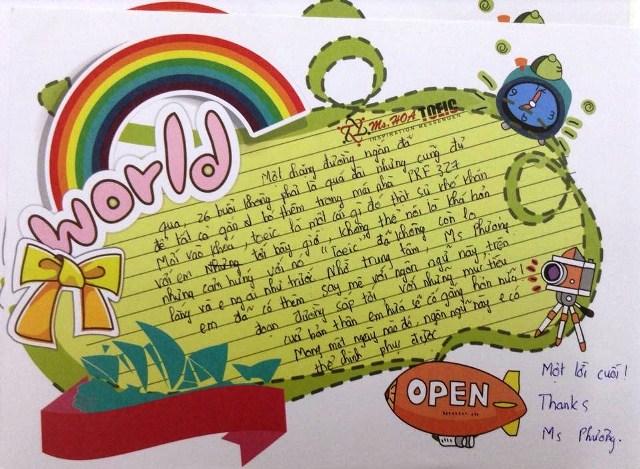 world
Ms. HOA TOEIC
INSPIRATION MESSENGER
Một chặng đường ngắn đã
qua, 26 buổi không phải là quá dài nhưng cũng đủ
để tất cả gắn bó thêm trong mái nhà PRE 327
Mới vào khóa, toeic là một cái gì đó thật sự khó khăn
với em nhưng tới bây giờ, không thể nói là khá hơn
nhưng cảm hứng với nó "Toeic" đã không còn lo
lắng và e ngại như trước. Nhờ trung tâm, Ms Phương
em đã có thêm say mê với ngôn ngữ này, trên
đoạn đường sắp tới với những mục tiêu
cuả bản thân em hứa sẽ cố gắng hơn nữa!
Mong một ngày nào đó, ngôn ngữ này e có
thể chinh phục được
OPEN
Một lời cuối!
Thanks
Ms Phương.